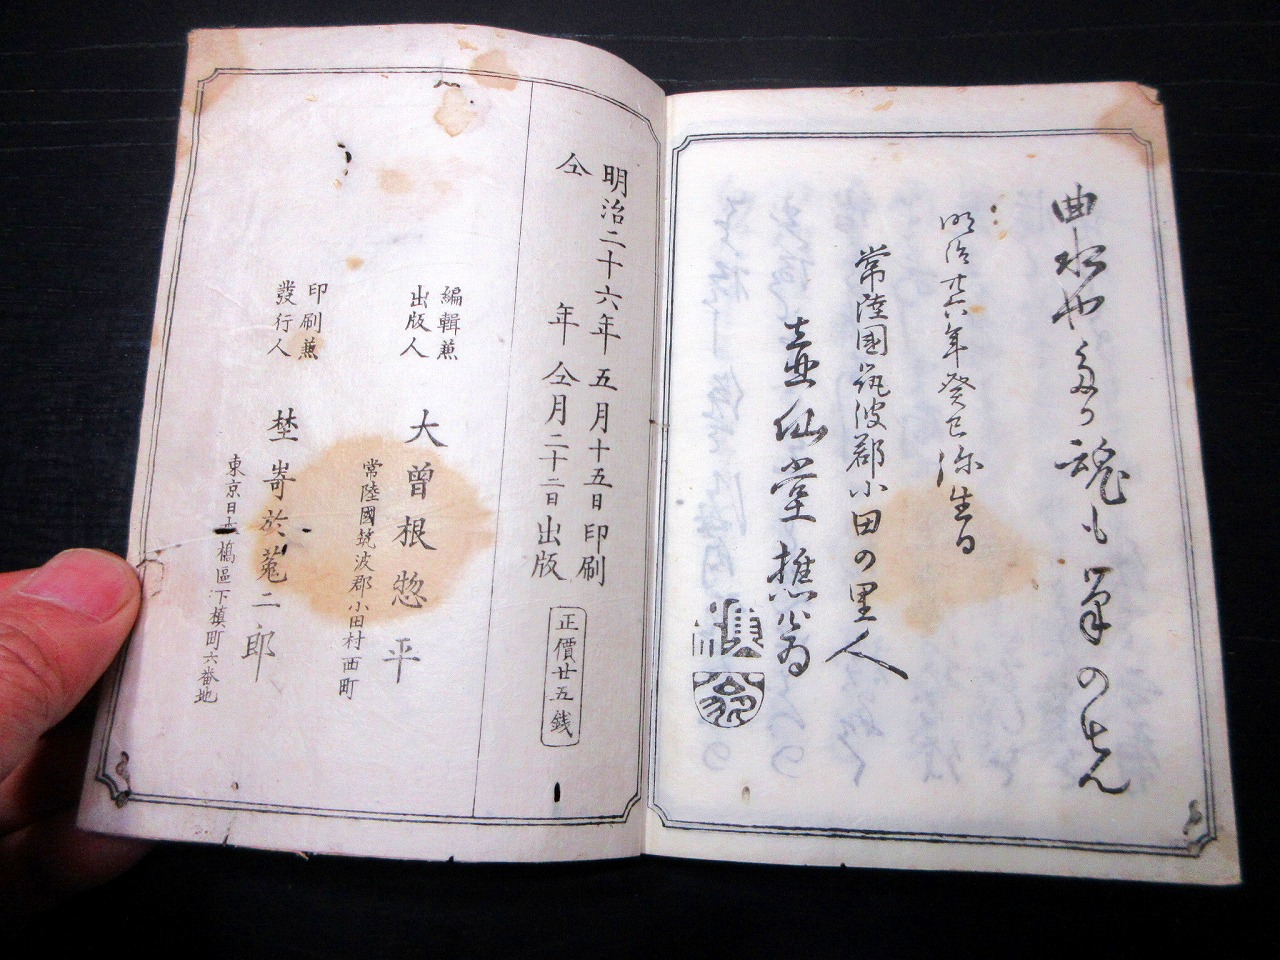 曲水や
魂も筆のさん
明治廿六年癸巳弥生日
常陸國筑波郡小田の里人
壺仙堂樵翁
明治二十六年五月十五日印刷
仝年仝月二十二日出版
正價廿五銭
編輯兼
出版人
大曽根惣平
常陸國筑波郡小田村西町
印刷兼
發行人
埜嵜於菟二郎
東京日本橋區下槙町六番地